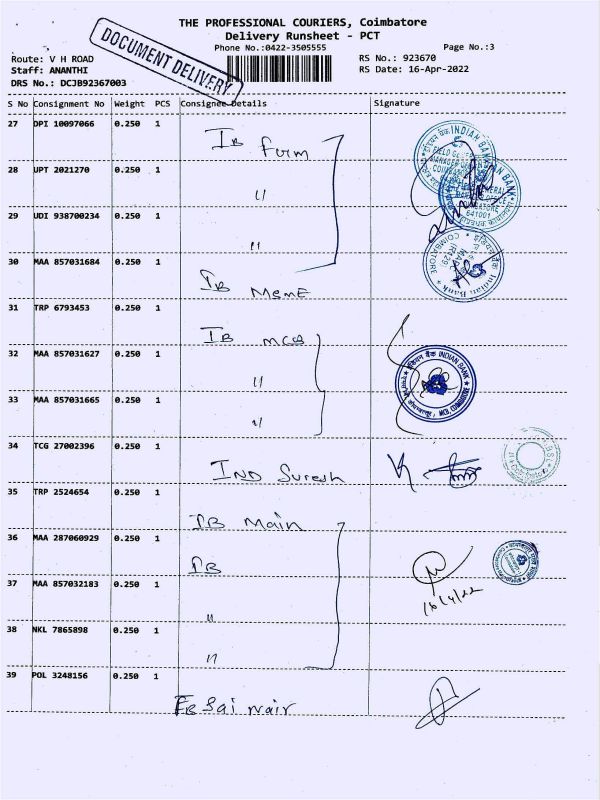 THE PROFESSIONAL COURIERS, Coimbatore
Delivery Runsheet - PCT
Phone No.:0422-3505555
Page No.:3
DOCUMENT DELIVERY
Route: V H ROAD
RS No.: 923670
Staff: ANANTHI
RS Date: 16-Apr-2022
DRS No.: DCJB92367003
S No Consignment No Weight PCS Consignee Details Signature
27 DPI 10097066 0.250 1
IB Furm
28 UPT 2021270 0.250 1
"
29 UDI 938700234 0.250 1
"
30 MAA 857031684 0.250 1
IB MSME
31 TRP 6793453 0.250 1
IB MCB
32 MAA 857031627 0.250 1
"
33 MAA 857031665 0.250 1
"
इंडियन बैंक INDIAN BANK
MCB, COIMBATORE
34 TCG 27002396 0.250 1
IND Suresh
35 TRP 2524654 0.250 1
IB Main
36 MAA 287060929 0.250 1
IB
37 MAA 857032183 0.250 1
"
16/4/22
38 NKL 7865898 0.250 1
"
39 POL 3248156 0.250 1
Sai nair
INDIAN BANK
641001
COIMBATORE
Indian Bank